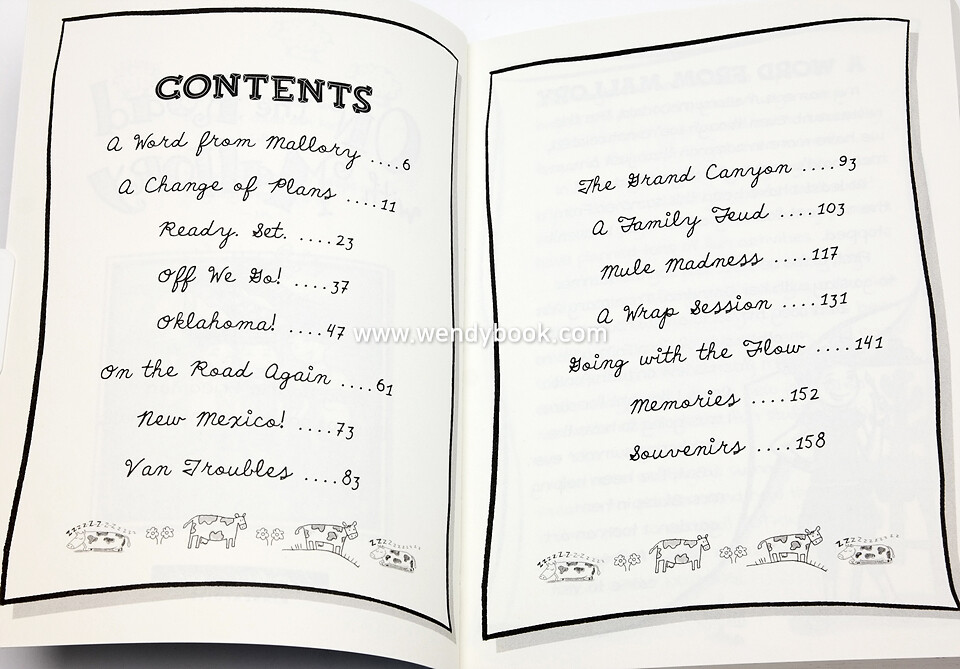 CONTENTS
A Word from Mallory ....6
A Change of Plans ....11
Ready. Set. ....23
Off We Go! ....37
Oklahoma! ....47
On the Road Again ....61
New Mexico! ....73
Van Troubles ....83
zzzzzzzzzz
zzzzzzzzzz
The Grand Canyon ....93
A Family Feud ....103
Mule Madness ....117
A Wrap Session ....131
Going with the Flow ....141
Memories ....152
Souvenirs ....158
zzzzzzzzzz
zzzzzzzzzz
www.wendybook.com